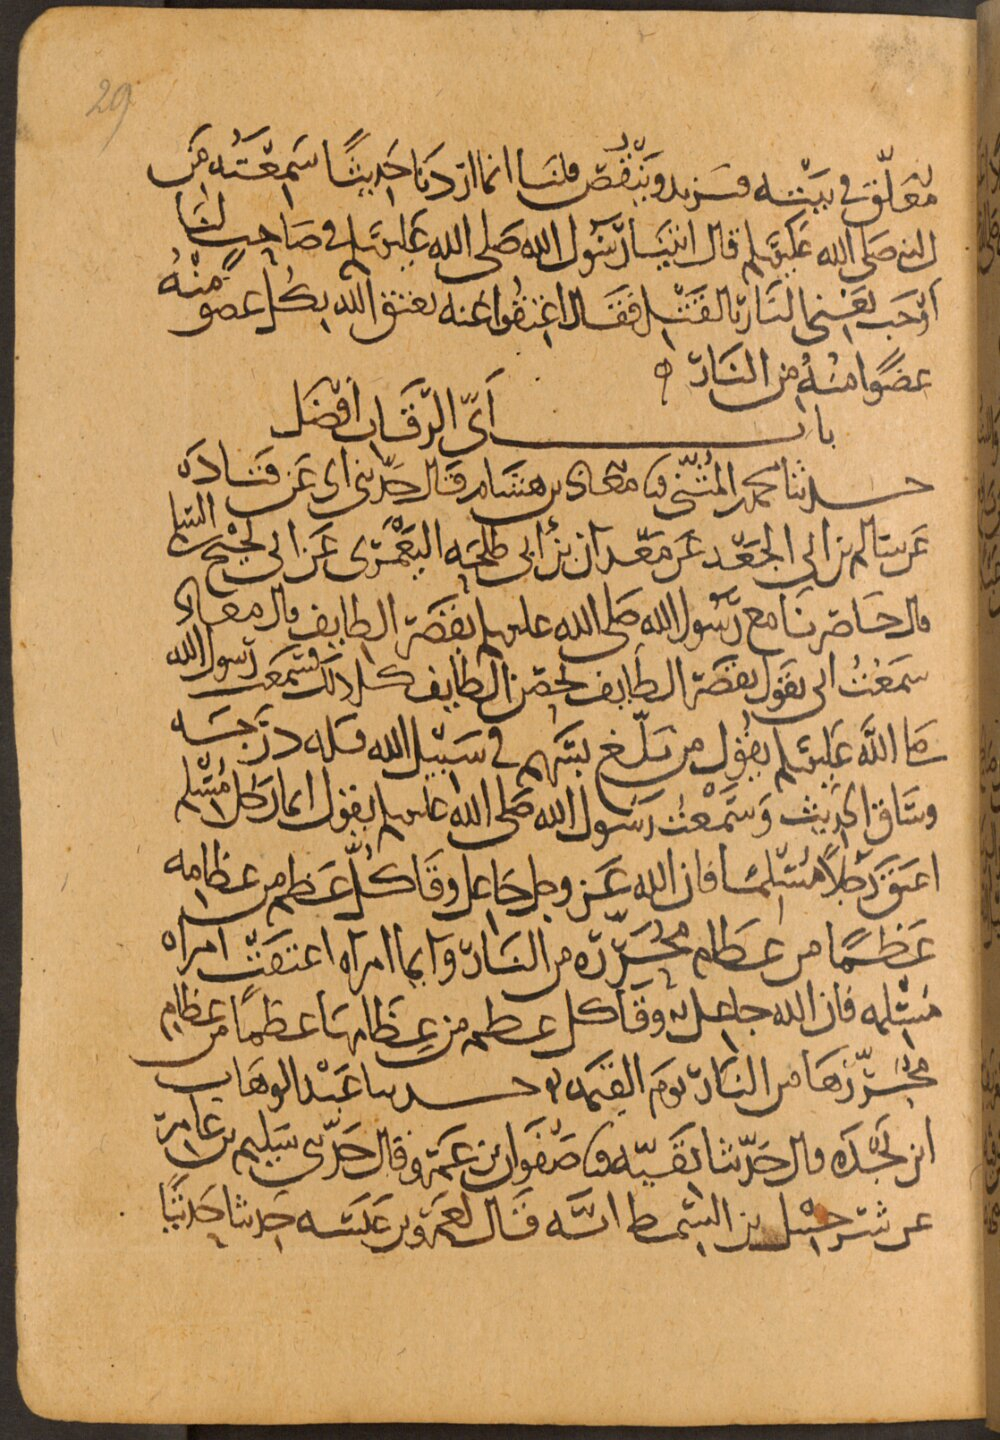 29
معلق في بيته فيزيد وينقص قلنا انما اردنا حديثا سمعته من
النبي صلى الله عليه وسلم قال اتينا رسول الله صلى الله عليه وسلم في صاحب لنا
أوجب يعني النار بالقتل فقال اعتقوا عنه يعتق الله بكل عضو منه
عضوا منه من النار ه
باب أي الرقاب أفضل
حدثنا محمد المثنى نا معاذ بن هشام قال حدثني ابي عن قتادة
عن سالم بن ابي الجعد عن معدان بن أبي طلحه اليعمري عن ابي نجيح السلمي
قال حاصرنا مع رسول الله صلى الله عليه وسلم بقصر الطايف قال معاذ
سمعت ابي يقول بقصر الطايف بحصن الطايف كل ذلك فسمعت رسول الله
صلى الله عليه وسلم يقول من بلغ بسهم في سبيل الله فله درجه
وساق الحديث وسمعت رسول الله صلى الله عليه وسلم يقول ايما رجل مسلم
اعتق رجلا مسلما فان الله عز وجل جاعل وقا كل عظم من عظامه
عظما من عظام محرره من النار وأيما امراه اعتقت امراه
مسلمه فان الله جاعل وقا كل عظم من عظامها عظما من عظام
محررها من النار يوم القيمه ه حدثنا عبد الوهاب
ابن نجده قال حدثنا بقيه نا صفوان بن عمرو قال حدثني سليم بن عامر
عن شرحبيل بن السمط انه قال لعمرو بن عبسه حدثنا حديثا